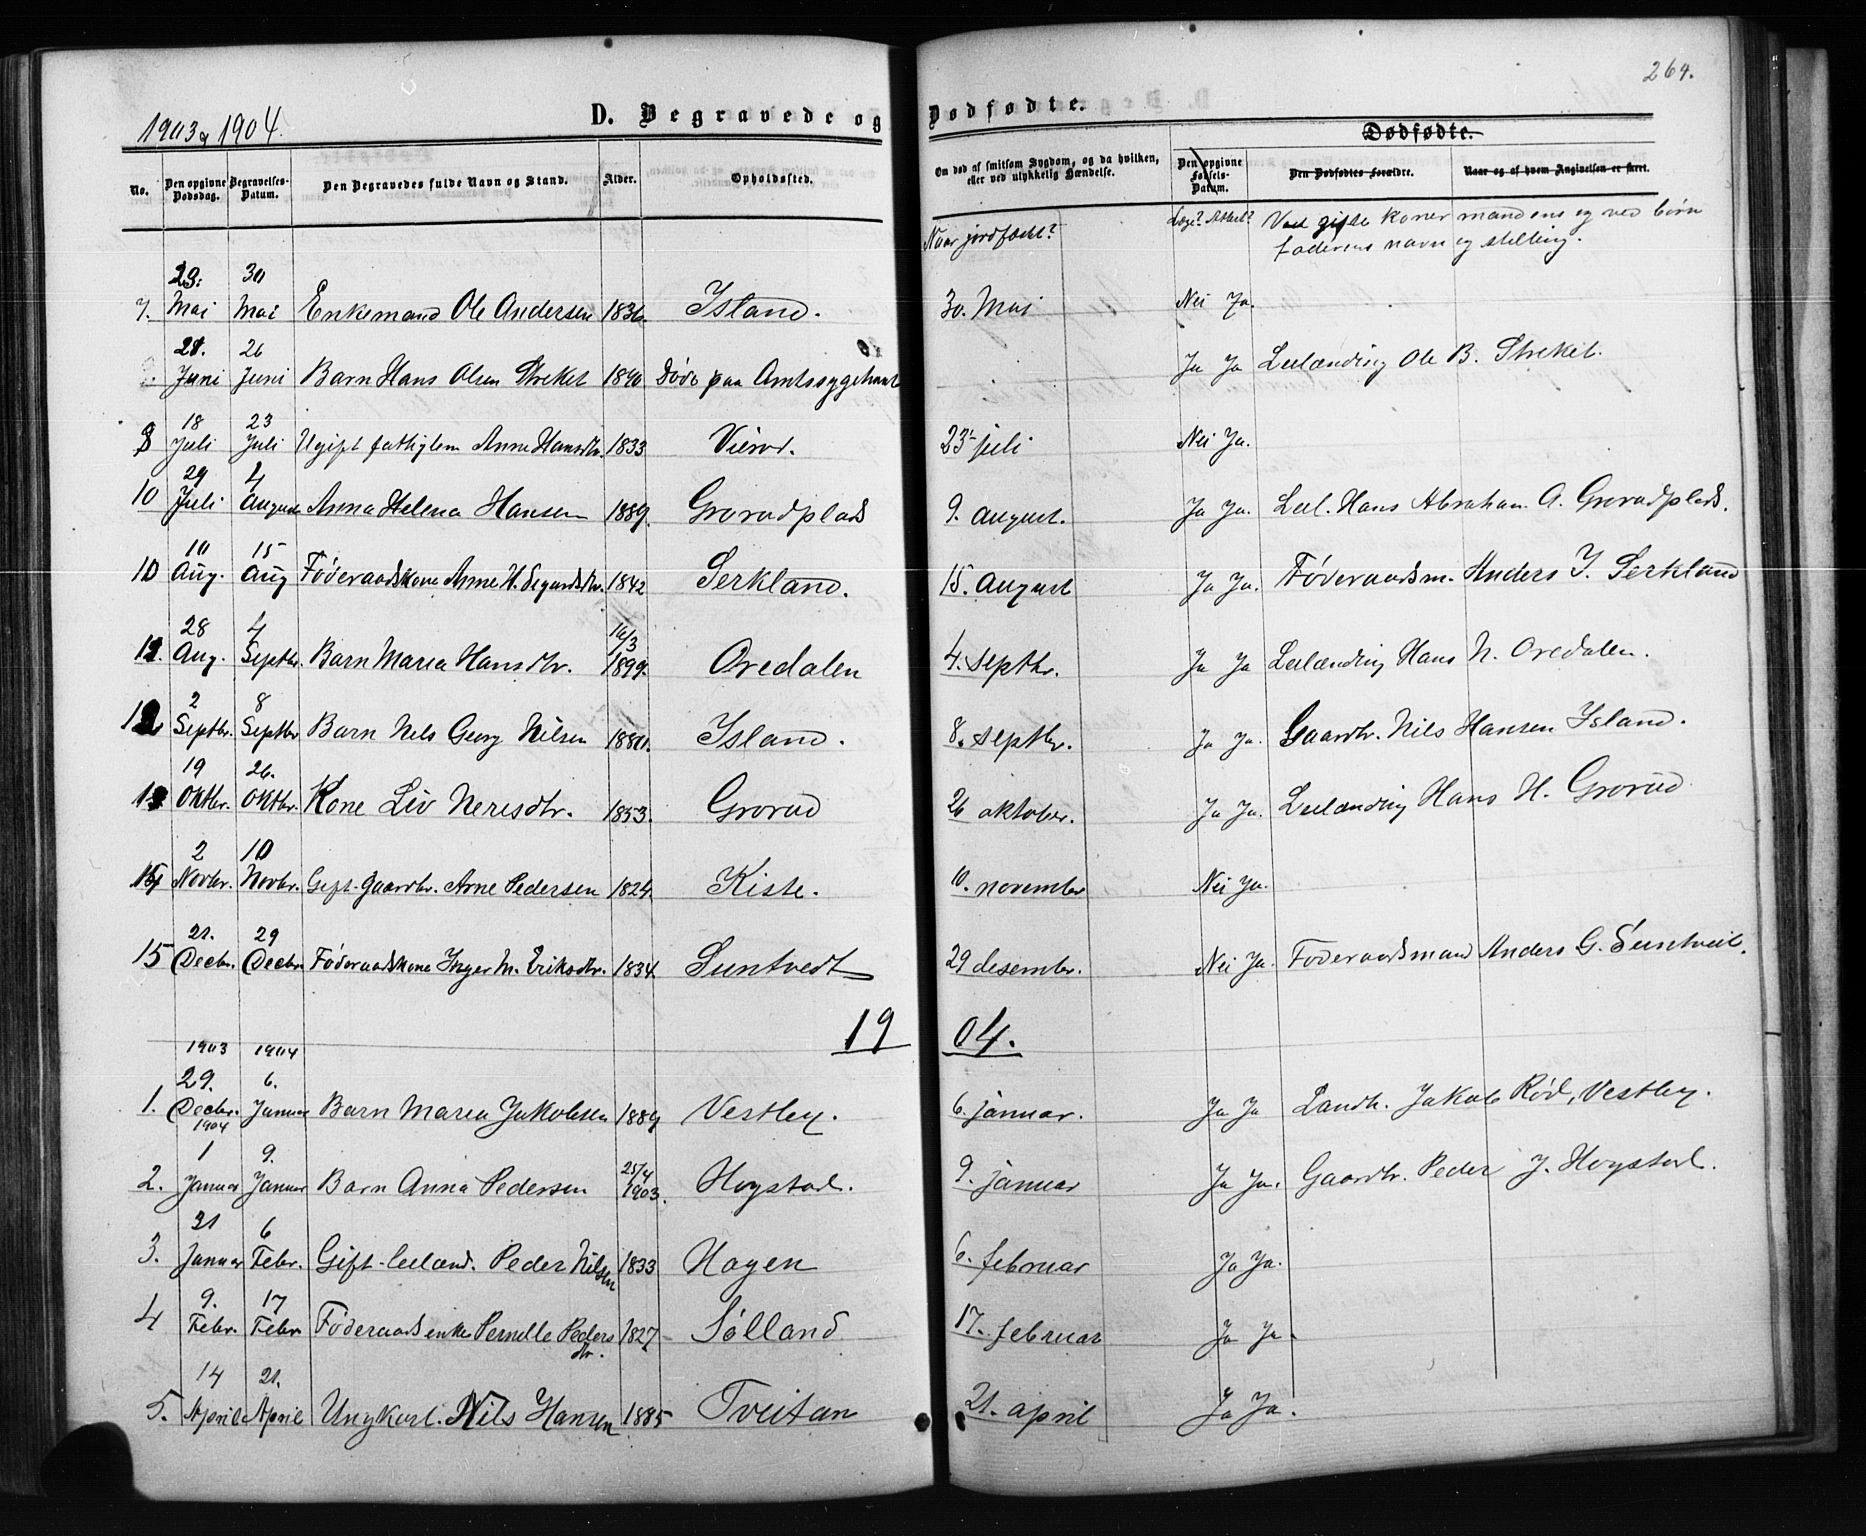 264.
1903 & 1904.
D. Begravede og Dødfødte.
Dødfødte.
No. Den opgivne Dødsdag. Begravelses-Datum. Den Begravedes fulde Navn og Stand. Alder. Opholdssted. Om død af smitsom Sygdom, og da hvilken, eller ved ulykkelig Hændelse. Den opgivne Fødsels-Datum. Den Dødfødtes Forældre. Naar og af hvem Angivelsen er skeet.
Naar jordfæstet? Læge? Attest? Ved gifte koner mandens og ved børn
faderens navn og stilling.
7. 23. Mai 30 Mai Enkemand Ole Andersen 1836. Island. 30. Mai Nei Ja.
21. Juni 26 Juni Barn Hans Olsen Streket 1890 Døde paa Amtssygehuset Ja Ja Leilænding Ole B. Streket.
8 18 Juli 23 Juli Ugift fattiglem Anne Hansdtr. 1833 Vierød. 23 juli Nei Ja.
10 29 Juli 4 August Anna Helena Hansen 1889. Grorudplads 9. august. Ja Ja. Leil. Hans Abraham A. Grorudplads.
10 10 Aug. 15 Aug Føderaadskone Anne H. Sigurdsdtr. 1842 Serkland. 15. august Ja Ja. Føderaadsm. Anders J. Serkland
11. 28 Aug. 4 Septbr. Barn Maria Hansdtr. 16/3 1899. Oredalen 4. septbr. Ja Ja Leilænding Hans N. Oredalen.
12 2 Septbr. 8 Septbr Barn Nils Georg Nilsen Island. 8. septbr. Ja Ja. Gaardbr. Nils Hansen Island.
13 19 Oktbr. 26. Oktbr. Kone Liv Neresdtr. 1853. Grorud 26 oktober. Ja Ja. Leilænding Hans H. Grorud
14 2 Novbr. 10 Novbr. Gift gaardbr. Arne Pedersen 1824. Kiste. 10. november Nei Ja.
15 21. Decbr. 29 Decbr. Føderaadskone Inger M. Eriksdtr. 1834. Suntvedt 29 desembr. Nei Ja. Føderaadsmand Anders G. Suntveit.
1904.
1903 1904
1. 29. Decbr. 6. Januar Barn Maren Jakobsen 1889 Vestby. 6. januar. Ja Ja Landh. Jakob Rød, Vestby.
1904
2. 1 Januar 9. Januar Barn Anna Pedersen 25/4 1903. Hogstad. 9. januar Ja Ja. Gaardbr. Peder J. Hogstad.
3. 31 Januar 6 Febr. Gift leilænd. Peder Nilsen 1833 Hagen 6. februar Ja Ja.
4 9. Febr. 17 Febr Føderaadsenke Pernille Pedersdtr. 1827 Sølland 17. februar Ja Ja.
5. 14 April 21. April Ungkarl. Nils Hansen 1885 Tveitan 21. april Ja Ja.